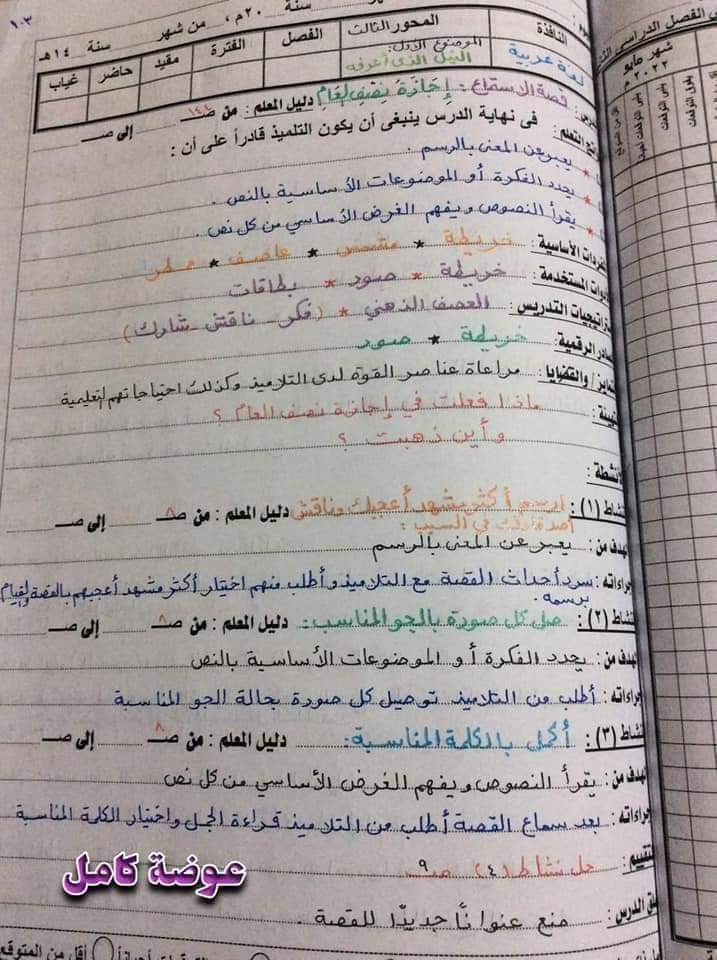 ١٠٣
سنة ٢٠ م، من شهر سنة ١٤ هـ
النافذة المحور الثالث الفصل الفترة مقيد حاضر غياب
لغة عربية الموضوع الأول: النيل الذي أعرفه
قصة الاستماع: إجازة نصف العام دليل المعلم: من صـ ١٤٤ إلى صـ
فى نهاية الدرس ينبغى أن يكون التلميذ قادراً على أن:
* يعبر عن المعنى بالرسم.
* يحدد الفكرة أو الموضوعات الأساسية بالنص.
* يقرأ النصوص ويفهم الغرض الأساسي من كل نص.
الأساسية: خريطة * مشمس * عاصف * ممطر
المستخدمة: خريطة * صور * بطاقات
التدريس: العصف الذهني * (فكر - ناقش - شارك)
الرقمية: خريطة * صور
والقضايا: مراعاة عناصر القوة لدى التلاميذ وكذلك احتياجاتهم التعليمية
ماذا فعلت في إجازة نصف العام؟
وأين ذهبت؟
(١): ارسم أكثر مشهد أعجبك وناقش دليل المعلم: من صـ ٨ إلى صـ
أصدقاءك في السبب:
يعبر عن المعنى بالرسم
سرد أحداث القصة مع التلاميذ وأطلب منهم اختيار أكثر مشهد أعجبهم بالقصة والقيام
برسمه.
(٢): صل كل صورة بالجو المناسب: دليل المعلم: من صـ ٨ إلى صـ
يحدد الفكرة أو الموضوعات الأساسية بالنص
أطلب من التلاميذ توصيل كل صورة بحالة الجو المناسبة
(٣): أكمل بالكلمة المناسبة: دليل المعلم: من صـ ٨ إلى صـ
يقرأ النصوص ويفهم الغرض الأساسي من كل نص
بعد سماع القصة أطلب من التلاميذ قراءة الجمل واختيار الكلمة المناسبة
حل نشاط (٤) صـ ٩
الدرس: منع عنوانًا جديدًا للقصة.
عوضة كامل
أحياناً أقل من المتوقع
الفصل الدراسى
شهر مايو
٢٠٢٢ م